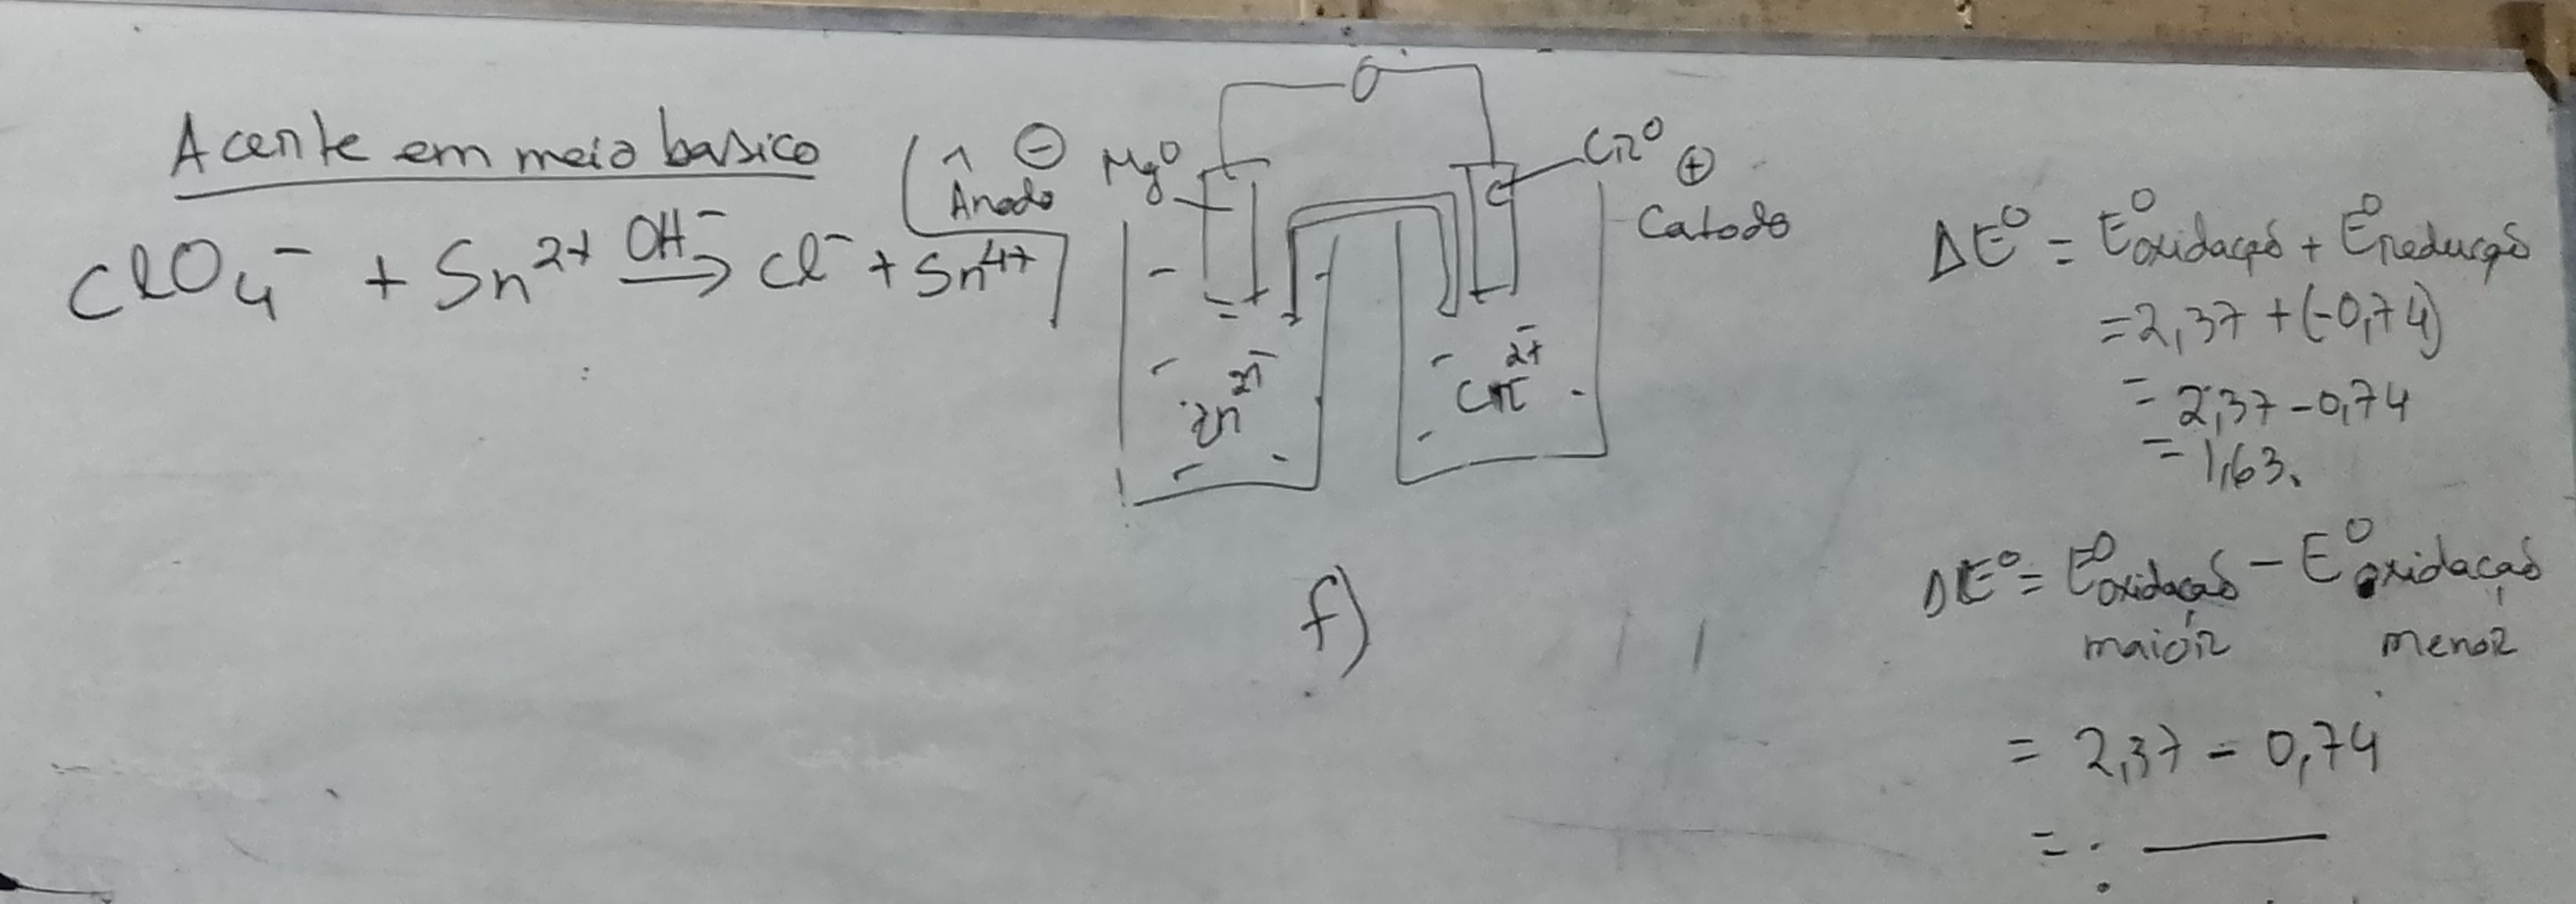 Acerte em meio basico
ClO₄⁻ + Sn²⁺ OH⁻ → Cl⁻ + Sn⁴⁺
⊖
Ânodo
Mg⁰
Cr⁰
⊕
Catodo
Zn²⁺
Cr²⁺
f)
ΔE⁰ = E⁰oxidação + E⁰redução
= 2,37 + (-0,74)
= 2,37 - 0,74
= 1,63.
ΔE⁰ = E⁰oxidação - E⁰oxidação
maior menor
= 2,37 - 0,74
=